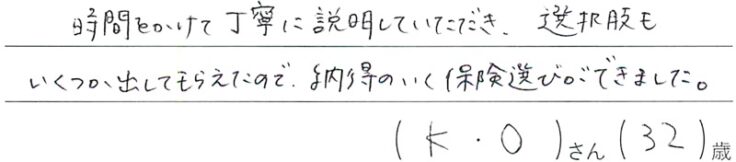 時間をかけて丁寧に説明していただき、選択肢も
いくつか出してもらえたので、納得のいく保険選びができました。
(K・O)さん(32)歳